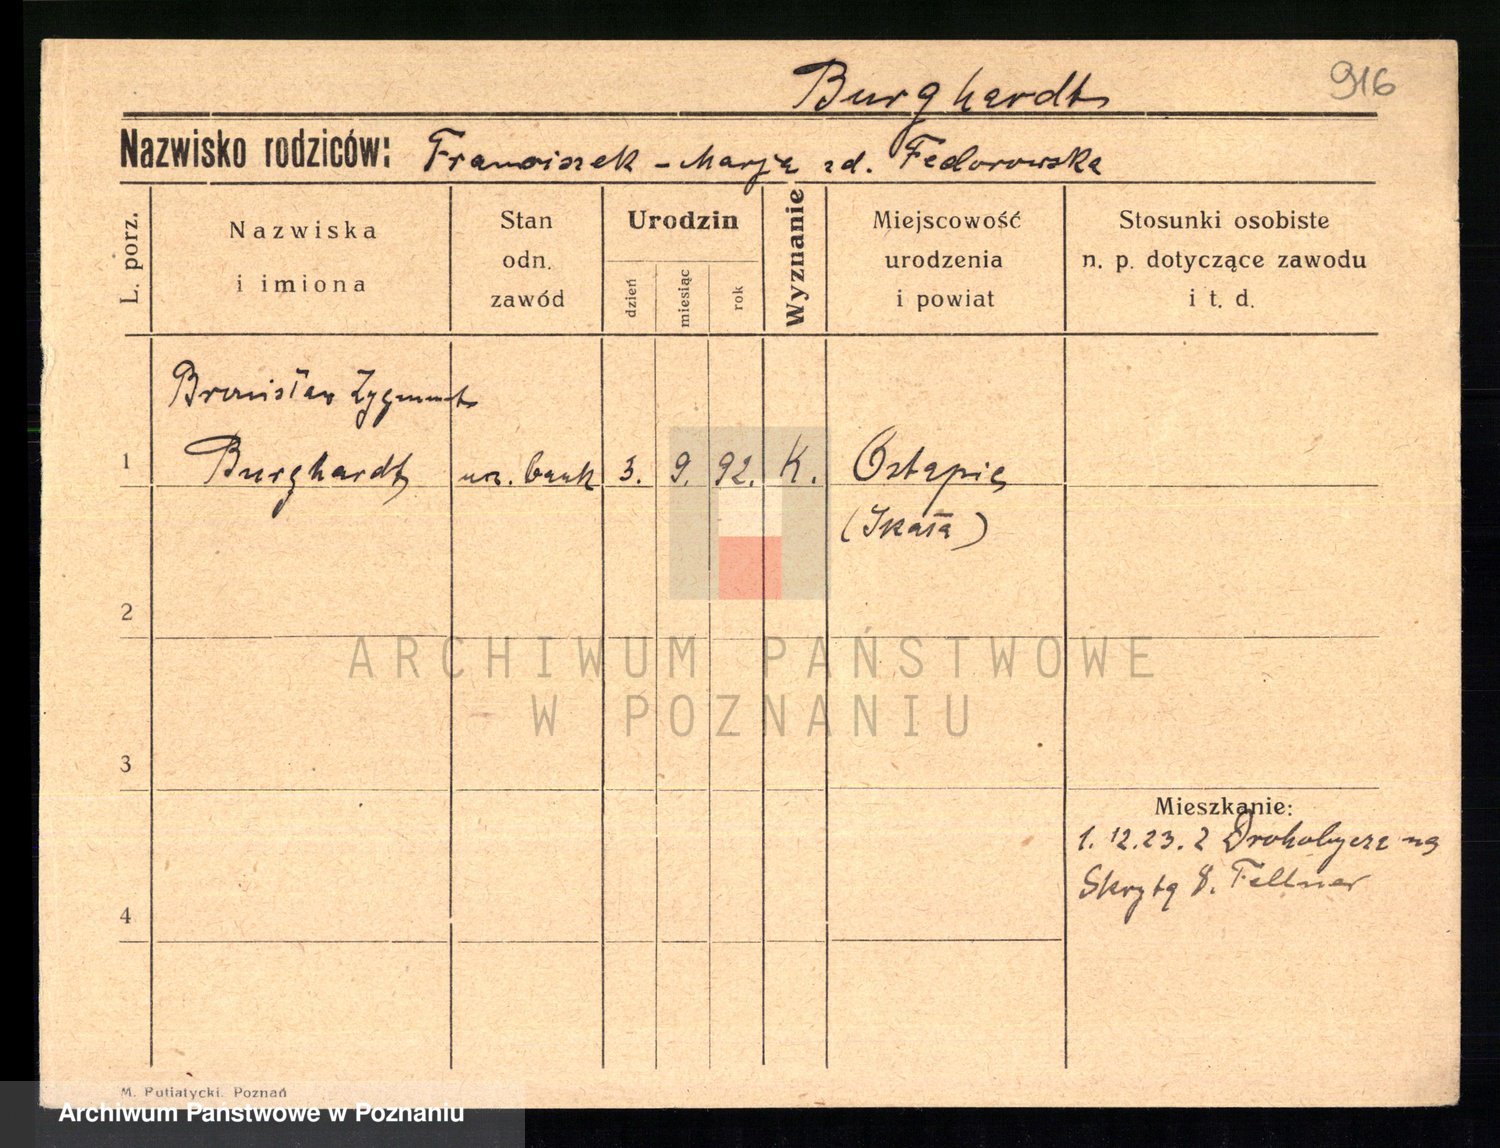 Burghardt
916
Nazwisko rodziców: Franciszek - Marja zd. Fedorowska
L. porz.
Nazwiska
i imiona
Stan
odn.
zawód
Urodzin
dzień
miesiąc
rok
Wyznanie
Miejscowość
urodzenia
i powiat
Stosunki osobiste
n. p. dotyczące zawodu
i t. d.
Bronisław Zygmunt
1 Burghardt urz. bank 3. 9. 92. K. Ostapie
(Skałą)
2
3
4
Mieszkanie:
1. 12. 23. z Drohobycza na
Skrytą 8. Fellner
M. Putiatycki. Poznań
ARCHIWUM PAŃSTWOWE
W POZNANIU
Archiwum Państwowe w Poznaniu